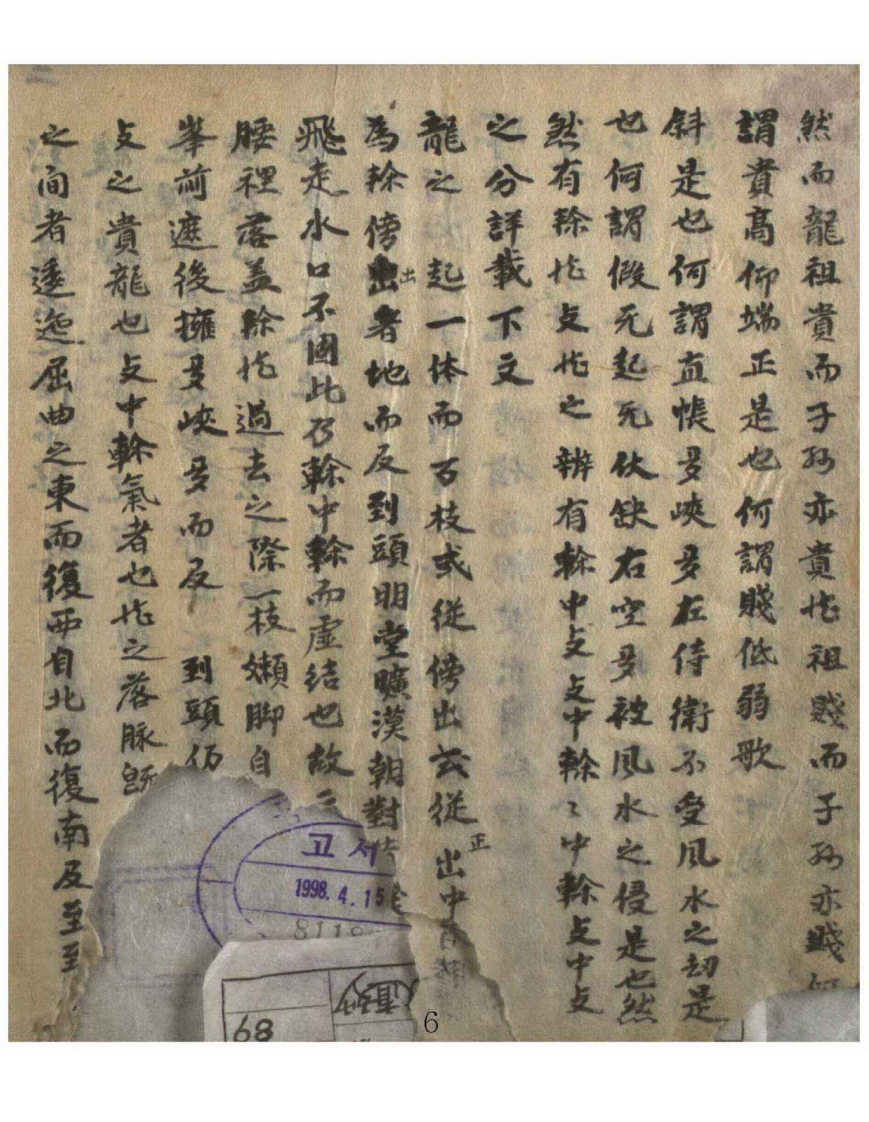 然而龍祖貴而子孫亦貴龙祖賤而子孫亦賤何
謂貴高仰端正是也何謂賤低弱歌
斜是也何謂眞帳多峽多左侍衛不受風水之刼是
也何謂假旡起旡伏缺右空多被風水之侵是也然
然有幹龙支龙之辨有幹中支支中幹〻中幹支中支
之分詳載下文
龍之起一体而百枝或從傍出或從正出中
為幹傍出者地而反到頭明堂曠漠朝對
飛走水口不固此乃幹中幹而虛結也故云
腰裡落盖幹龙過去之際一枝嫩脚自
峯前遮後擁多峽多而反到頭仍
支之貴龍也支中幹氣者也龙之落脉旣
之間者逶迤屈曲之東而復西自北而復南及至至
고서
1998. 4. 15
68
6